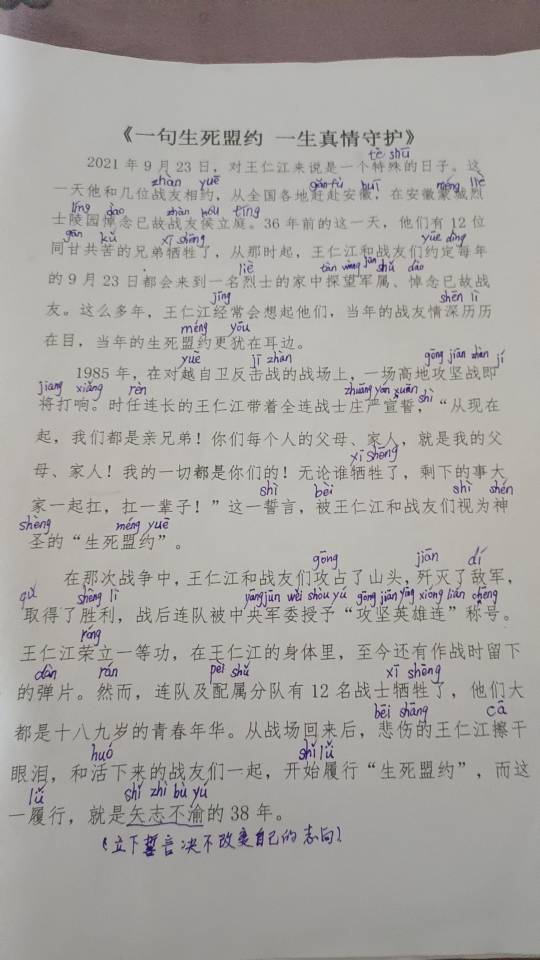 《一句生死盟约 一生真情守护》
tè shū
2021年9月23日，对王仁江来说是一个特殊的日子。这
zhàn yuē gǎn fù huī méng liè
一天他和几位战友相约，从全国各地赶赴安徽，在安徽蒙城烈
líng dào zhàn hóu tíng
士陵园悼念已故战友侯立庭。36年前的这一天，他们有12位
gān kǔ xī shēng yuē dìng
同甘共苦的兄弟牺牲了，从那时起，王仁江和战友们约定每年
liè tàn wàng jūn shǔ dào
的9月23日都会来到一名烈士的家中探望军属、悼念已故战
jīng shēn lì
友。这么多年，王仁江经常会想起他们，当年的战友情深历历
méng yóu
在目，当年的生死盟约更犹在耳边。
yuè jī zhàn gōng jiān zhàn jí
1985年，在对越自卫反击战的战场上，一场高地攻坚战即
jiang xiǎng rèn zhuāng yán xuān shì
将打响。时任连长的王仁江带着全连战士庄严宣誓，“从现在
起，我们都是亲兄弟！你们每个人的父母、家人，就是我的父
xī shēng
母、家人！我的一切都是你们的！无论谁牺牲了，剩下的事大
shì bèi shì shén
家一起扛，扛一辈子！”这一誓言，被王仁江和战友们视为神
shèng méng yuē
圣的“生死盟约”。
gōng jiān dí
在那次战争中，王仁江和战友们攻占了山头，歼灭了敌军，
qǔ shēng lì yāng jūn wěi shòu yǔ gōng jiān yīng xióng lián chēng
取得了胜利，战后连队被中央军委授予“攻坚英雄连”称号。
róng
王仁江荣立一等功，在王仁江的身体里，至今还有作战时留下
dàn rán pèi shǔ xī shēng
的弹片。然而，连队及配属分队有12名战士牺牲了，他们大
bēi shāng cā
都是十八九岁的青春年华。从战场回来后，悲伤的王仁江擦干
huó shǐ lǚ
眼泪，和活下来的战友们一起，开始履行“生死盟约”，而这
lǚ shǐ zhì bù yú
一履行，就是矢志不渝的38年。
（立下誓言决不改变自己的志向）